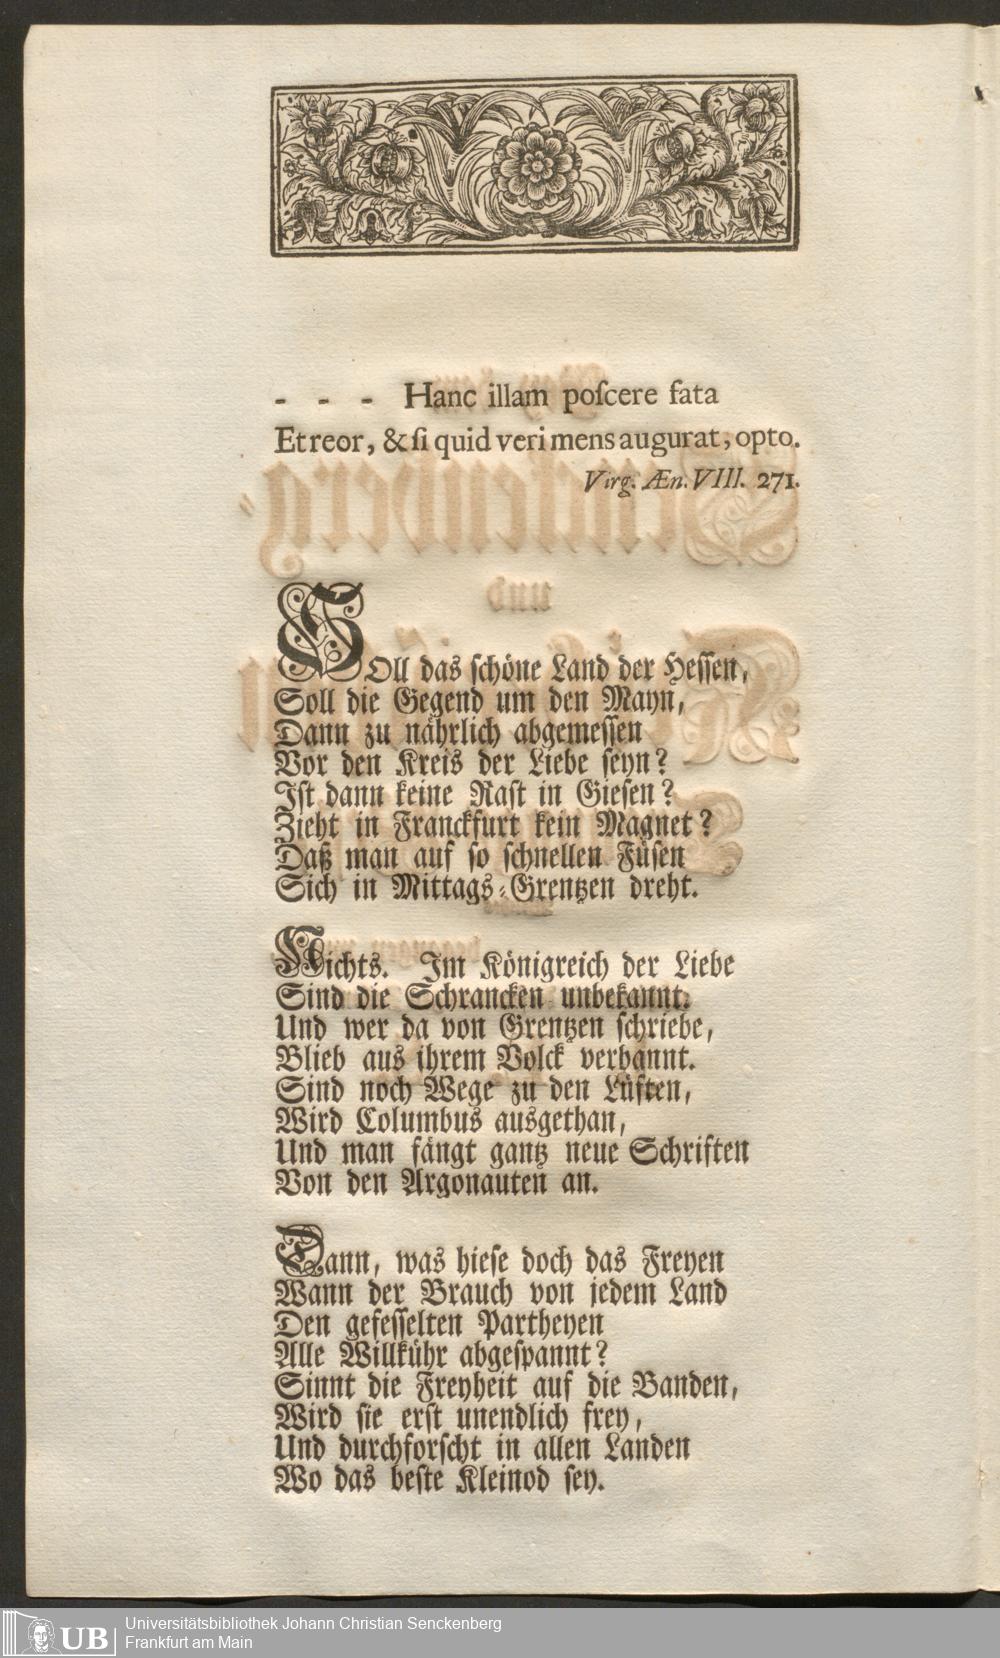 - - - Hanc illam poſcere fata
Et reor, & ſi quid veri mens augurat, opto.
Virg. Æn. VIII. 271.
SOll das ſchöne Land der Heſſen,
Soll die Gegend um den Mayn,
Dann zu nährlich abgemeſſen
Vor den Kreis der Liebe ſeyn?
Iſt dann keine Raſt in Gieſen?
Zieht in Franckfurt kein Magnet?
Daß man auf ſo ſchnellen Füſen
Sich in Mittags-Grentzen dreht.
Nichts. Im Königreich der Liebe
Sind die Schrancken unbekannt.
Und wer da von Grentzen ſchriebe,
Blieb aus ihrem Volck verbannt.
Sind noch Wege zu den Lüften,
Wird Columbus ausgethan,
Und man fängt gantz neue Schriften
Von den Argonauten an.
Dann, was hieſe doch das Freyen
Wann der Brauch von jedem Land
Den gefeſſelten Partheyen
Alle Willkühr abgeſpannt?
Sinnt die Freyheit auf die Banden,
Wird ſie erſt unendlich frey,
Und durchforſcht in allen Landen
Wo das beſte Kleinod ſey.
UB
Universitätsbibliothek Johann Christian Senckenberg
Frankfurt am Main